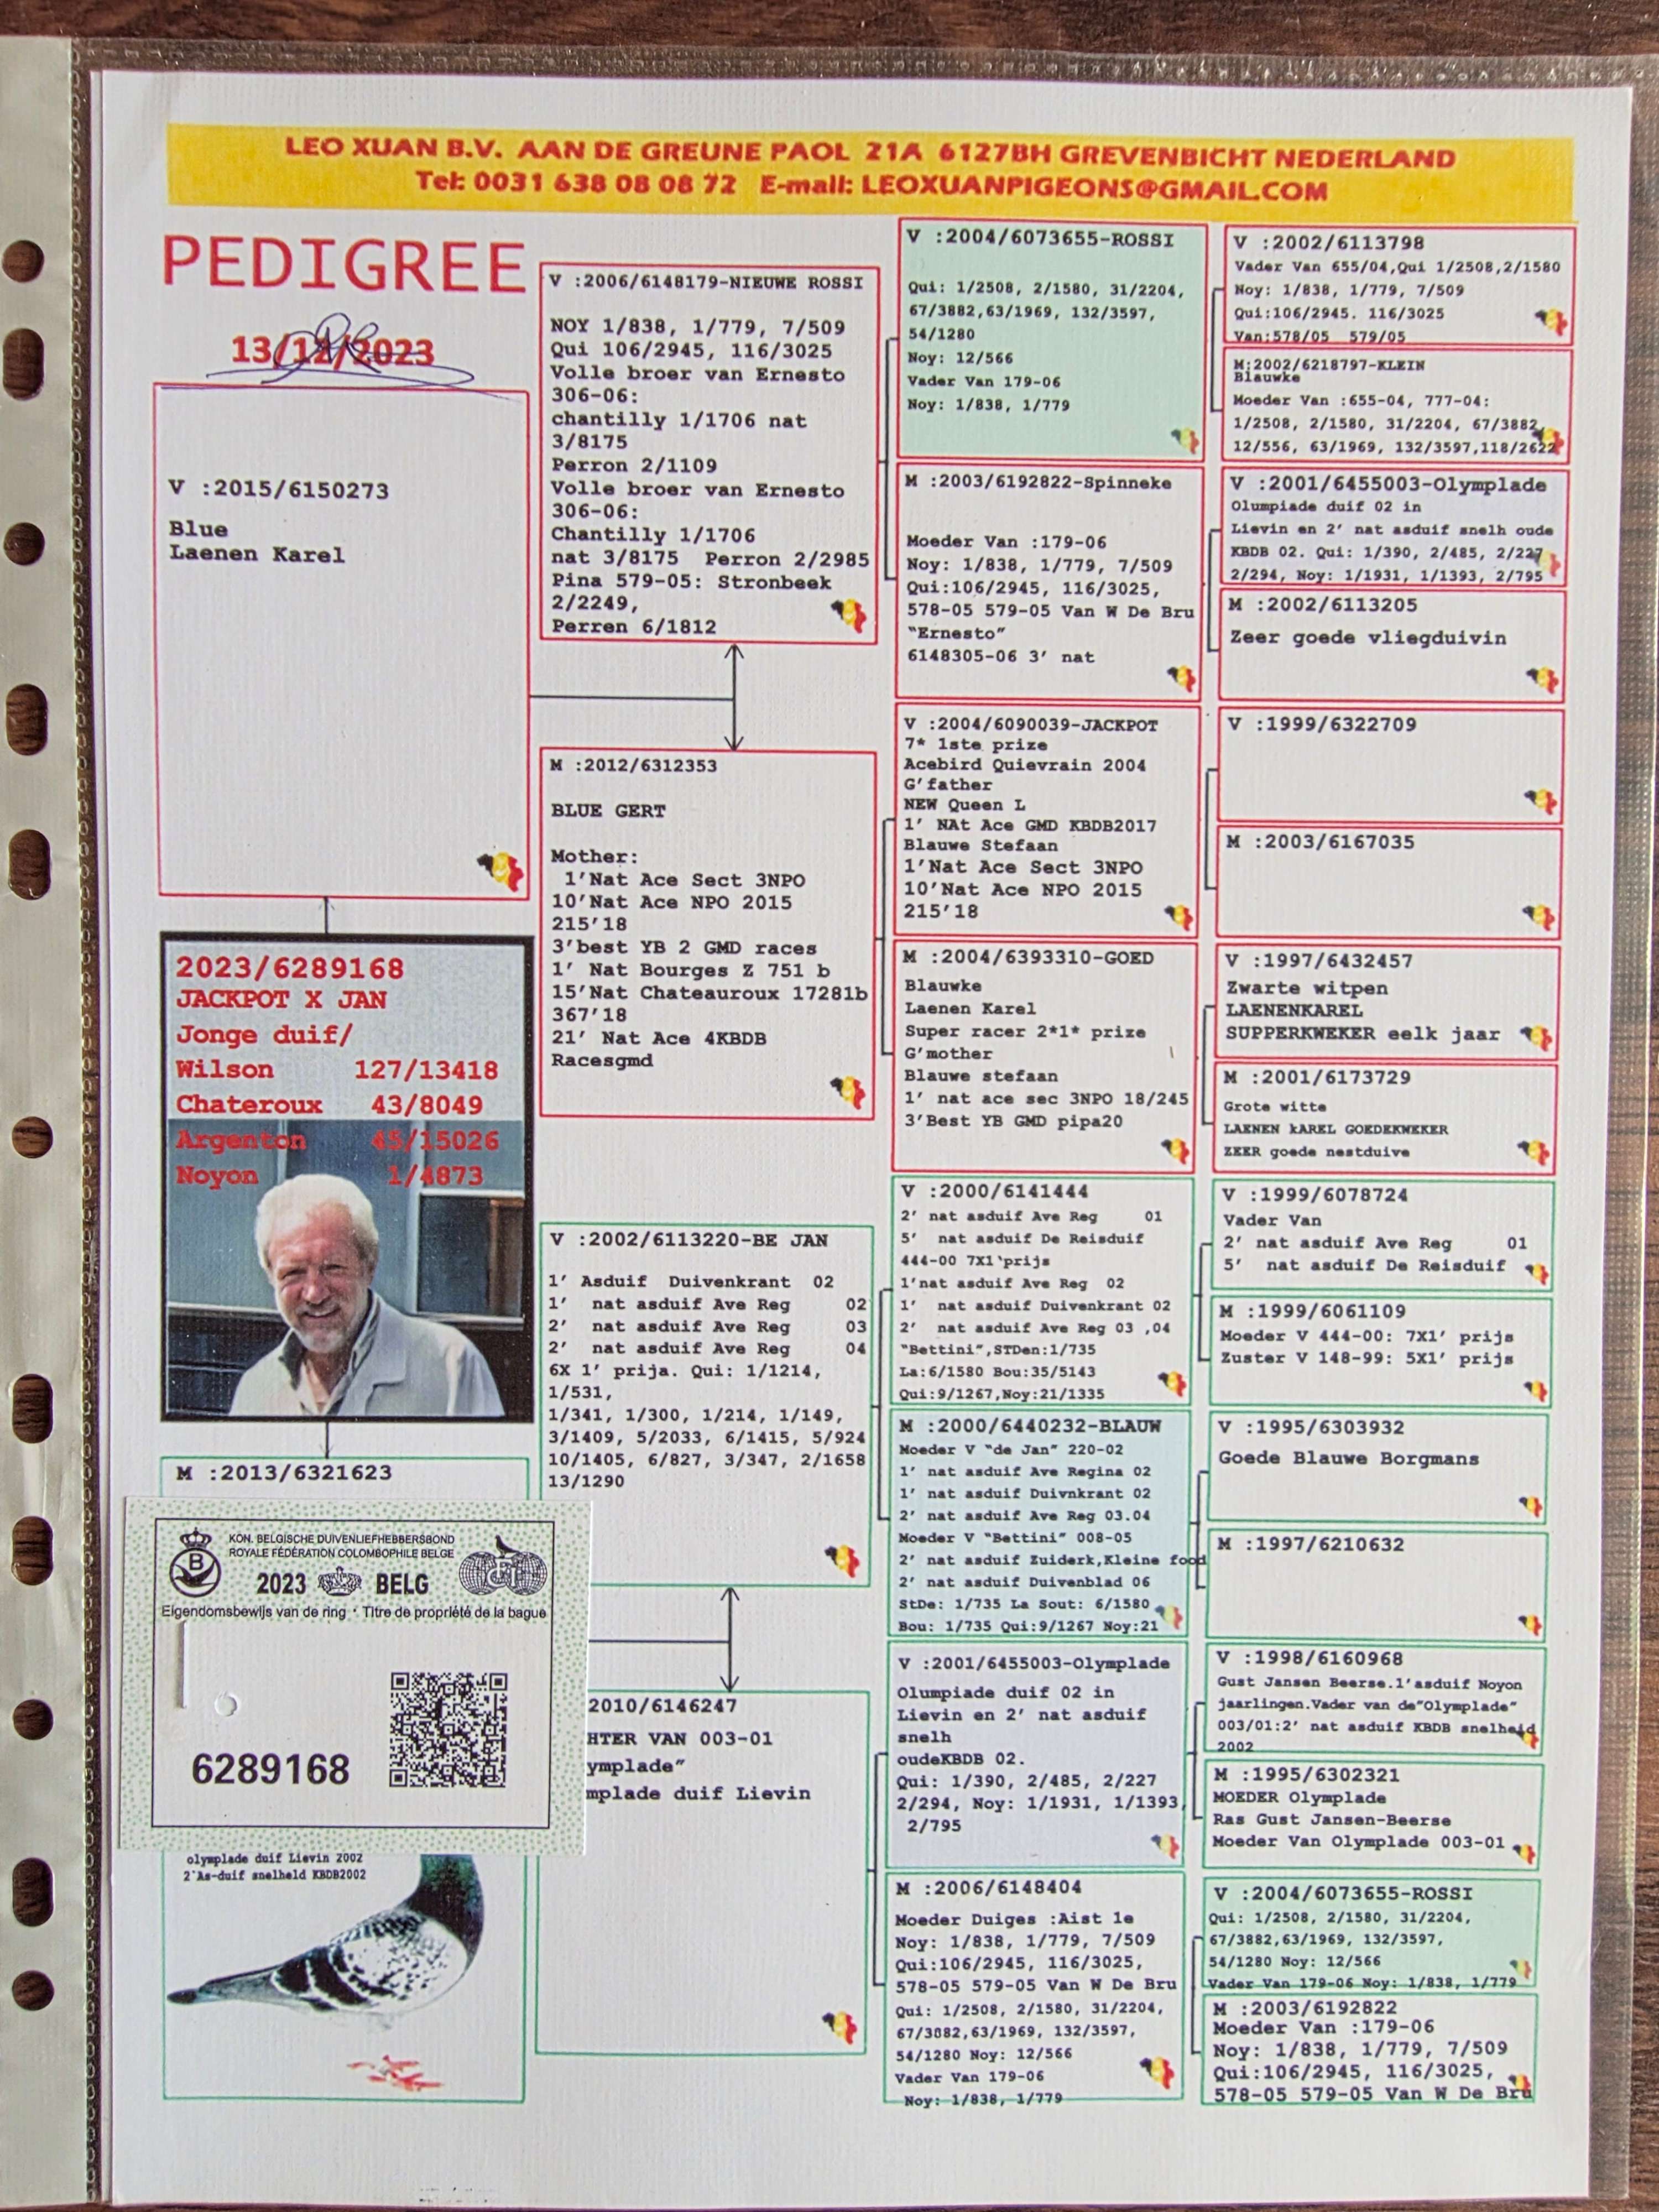 LEO XUAN B.V. AAN DE GREUNE PAOL 21A 6127BH GREVENBICHT NEDERLAND
Tel: 0031 638 08 08 72 E-mail: LEOXUANPIGEONS@GMAIL.COM
PEDIGREE
13/12/2023
V :2015/6150273
Blue
Laenen Karel
2023/6289168
JACKPOT X JAN
Jonge duif/
Wilson 127/13418
Chateroux 43/8049
Argenton 45/15026
Noyon 1/4873
M :2013/6321623
KON. BELGISCHE DUIVENLIEFHEBBERSBOND
ROYALE FÉDÉRATION COLOMBOPHILE BELGE
B
2023 BELG
Eigendomsbewijs van de ring · Titre de propriété de la bague
6289168
olymplade duif Lievin 2002
2'As-duif snelheld KBDB2002
V :2006/6148179-NIEUWE ROSSI
NOY 1/838, 1/779, 7/509
Qui 106/2945, 116/3025
Volle broer van Ernesto
306-06:
chantilly 1/1706 nat
3/8175
Perron 2/1109
Volle broer van Ernesto
306-06:
Chantilly 1/1706
nat 3/8175 Perron 2/2985
Pina 579-05: Stronbeek
2/2249,
Perren 6/1812
M :2012/6312353
BLUE GERT
Mother:
1'Nat Ace Sect 3NPO
10'Nat Ace NPO 2015
215'18
3'best YB 2 GMD races
1' Nat Bourges Z 751 b
15'Nat Chateauroux 17281b
367'18
21' Nat Ace 4KBDB
Racesgmd
V :2002/6113220-BE JAN
1' Asduif Duivenkrant 02
1' nat asduif Ave Reg 02
2' nat asduif Ave Reg 03
2' nat asduif Ave Reg 04
6X 1' prija. Qui: 1/1214,
1/531,
1/341, 1/300, 1/214, 1/149,
3/1409, 5/2033, 6/1415, 5/924
10/1405, 6/827, 3/347, 2/1658
13/1290
2010/6146247
HTER VAN 003-01
ymplade"
mplade duif Lievin
V :2004/6073655-ROSSI
Qui: 1/2508, 2/1580, 31/2204,
67/3882,63/1969, 132/3597,
54/1280
Noy: 12/566
Vader Van 179-06
Noy: 1/838, 1/779
M :2003/6192822-Spinneke
Moeder Van :179-06
Noy: 1/838, 1/779, 7/509
Qui:106/2945, 116/3025,
578-05 579-05 Van W De Bru
"Ernesto"
6148305-06 3' nat
V :2004/6090039-JACKPOT
7* 1ste prize
Acebird Quievrain 2004
G'father
NEW Queen L
1' NAt Ace GMD KBDB2017
Blauwe Stefaan
1'Nat Ace Sect 3NPO
10'Nat Ace NPO 2015
215'18
M :2004/6393310-GOED
Blauwke
Laenen Karel
Super racer 2*1* prize
G'mother
Blauwe stefaan
1' nat ace sec 3NPO 18/245
3'Best YB GMD pipa20
V :2000/6141444
2' nat asduif Ave Reg 01
5' nat asduif De Reisduif
444-00 7X1'prijs
1'nat asduif Ave Reg 02
1' nat asduif Duivenkrant 02
2' nat asduif Ave Reg 03 ,04
"Bettini",STDen:1/735
La:6/1580 Bou:35/5143
Qui:9/1267,Noy:21/1335
M :2000/6440232-BLAUW
Moeder V "de Jan" 220-02
1' nat asduif Ave Regina 02
1' nat asduif Duivnkrant 02
2' nat asduif Ave Reg 03.04
Moeder V "Bettini" 008-05
2' nat asduif Zuiderk,Kleine food
2' nat asduif Duivenblad 06
StDe: 1/735 La Sout: 6/1580
Bou: 1/735 Qui:9/1267 Noy:21
V :2001/6455003-Olymplade
Olumpiade duif 02 in
Lievin en 2' nat asduif
snelh
oudeKBDB 02.
Qui: 1/390, 2/485, 2/227
2/294, Noy: 1/1931, 1/1393,
2/795
M :2006/6148404
Moeder Duiges :Aist 1e
Noy: 1/838, 1/779, 7/509
Qui:106/2945, 116/3025,
578-05 579-05 Van W De Bru
Qui: 1/2508, 2/1580, 31/2204,
67/3882,63/1969, 132/3597,
54/1280 Noy: 12/566
Vader Van 179-06
Noy: 1/838, 1/779
V :2002/6113798
Vader Van 655/04,Qui 1/2508,2/1580
Noy: 1/838, 1/779, 7/509
Qui:106/2945. 116/3025
Van:578/05 579/05
M:2002/6218797-KLEIN
Blauwke
Moeder Van :655-04, 777-04:
1/2508, 2/1580, 31/2204, 67/3882,
12/556, 63/1969, 132/3597,118/2622
V :2001/6455003-Olymplade
Olumpiade duif 02 in
Lievin en 2' nat asduif snelh oude
KBDB 02. Qui: 1/390, 2/485, 2/227
2/294, Noy: 1/1931, 1/1393, 2/795
M :2002/6113205
Zeer goede vliegduivin
V :1999/6322709
M :2003/6167035
V :1997/6432457
Zwarte witpen
LAENENKAREL
SUPPERKWEKER eelk jaar
M :2001/6173729
Grote witte
LAENEN kAREL GOEDEKWEKER
ZEER goede nestduive
V :1999/6078724
Vader Van
2' nat asduif Ave Reg 01
5' nat asduif De Reisduif
M :1999/6061109
Moeder V 444-00: 7X1' prijs
Zuster V 148-99: 5X1' prijs
V :1995/6303932
Goede Blauwe Borgmans
M :1997/6210632
V :1998/6160968
Gust Jansen Beerse.1'asduif Noyon
jaarlingen.Vader van de"Olymplade"
003/01:2' nat asduif KBDB snelheid
2002
M :1995/6302321
MOEDER Olymplade
Ras Gust Jansen-Beerse
Moeder Van Olymplade 003-01
V :2004/6073655-ROSSI
Qui: 1/2508, 2/1580, 31/2204,
67/3882,63/1969, 132/3597,
54/1280 Noy: 12/566
Vader Van 179-06 Noy: 1/838, 1/779
M :2003/6192822
Moeder Van :179-06
Noy: 1/838, 1/779, 7/509
Qui:106/2945, 116/3025,
578-05 579-05 Van W De Bru